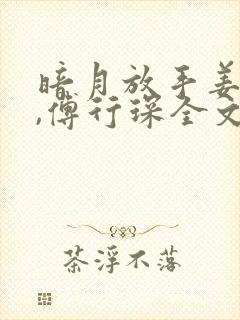 暗月放手姜
,傅行琛全文
茶浮不落